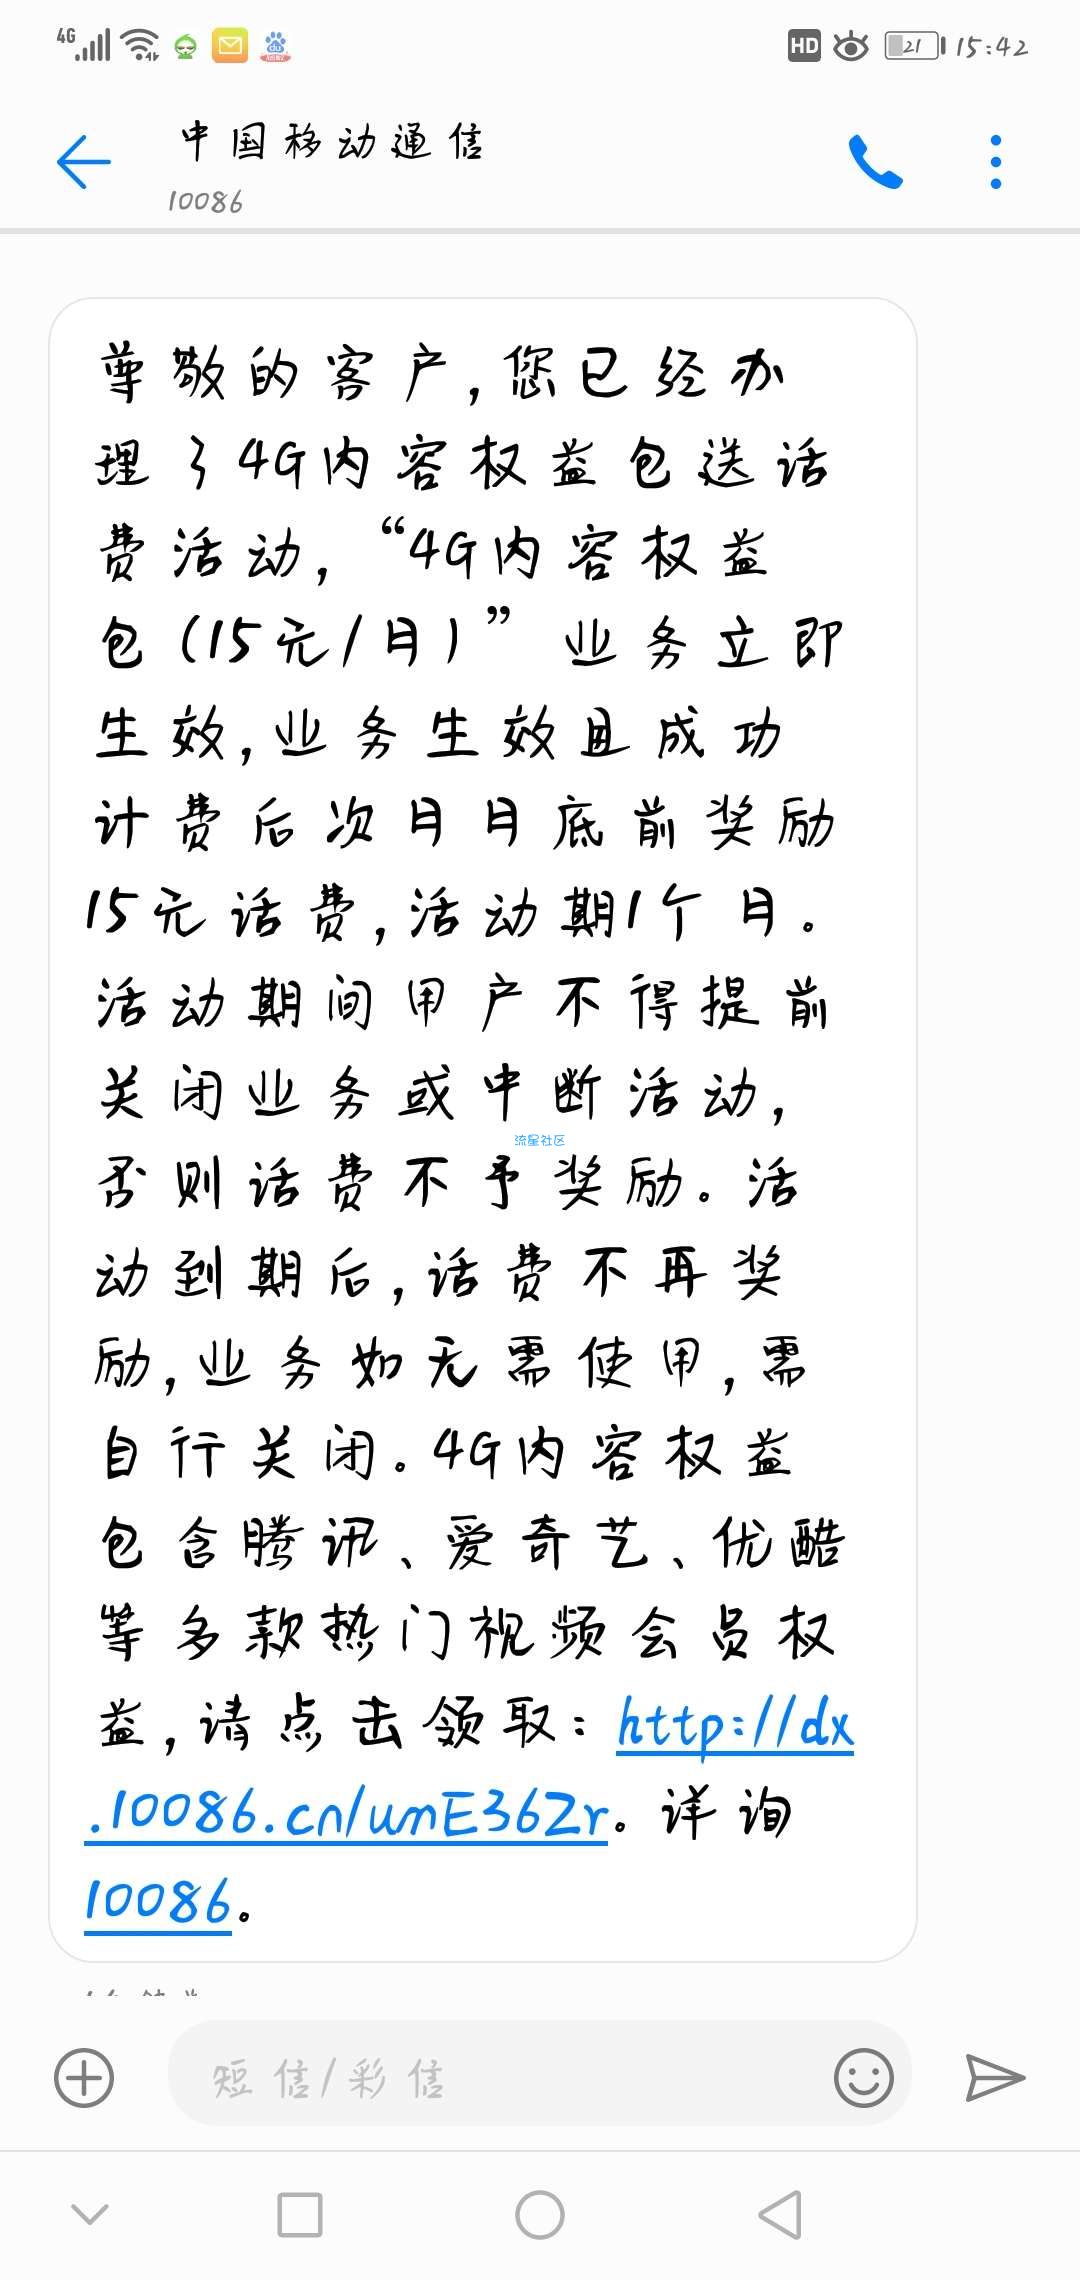 4G 21 15:42
HD
中国移动通信
10086
尊敬的客户,您已经办
理了4G内容权益包送话
费活动,“4G内容权益
包(15元/月)”业务立即
生效,业务生效且成功
计费后次月月底前奖励
15元话费,活动期1个月。
活动期间用户不得提前
关闭业务或中断活动,
流星社区
否则话费不予奖励。活
动到期后,话费不再奖
励,业务如无需使用,需
自行关闭。4G内容权益
包含腾讯、爱奇艺、优酷
等多款热门视频会员权
益,请点击领取:http://dx
.10086.cn/umE36Zr。详询
10086。
短信/彩信